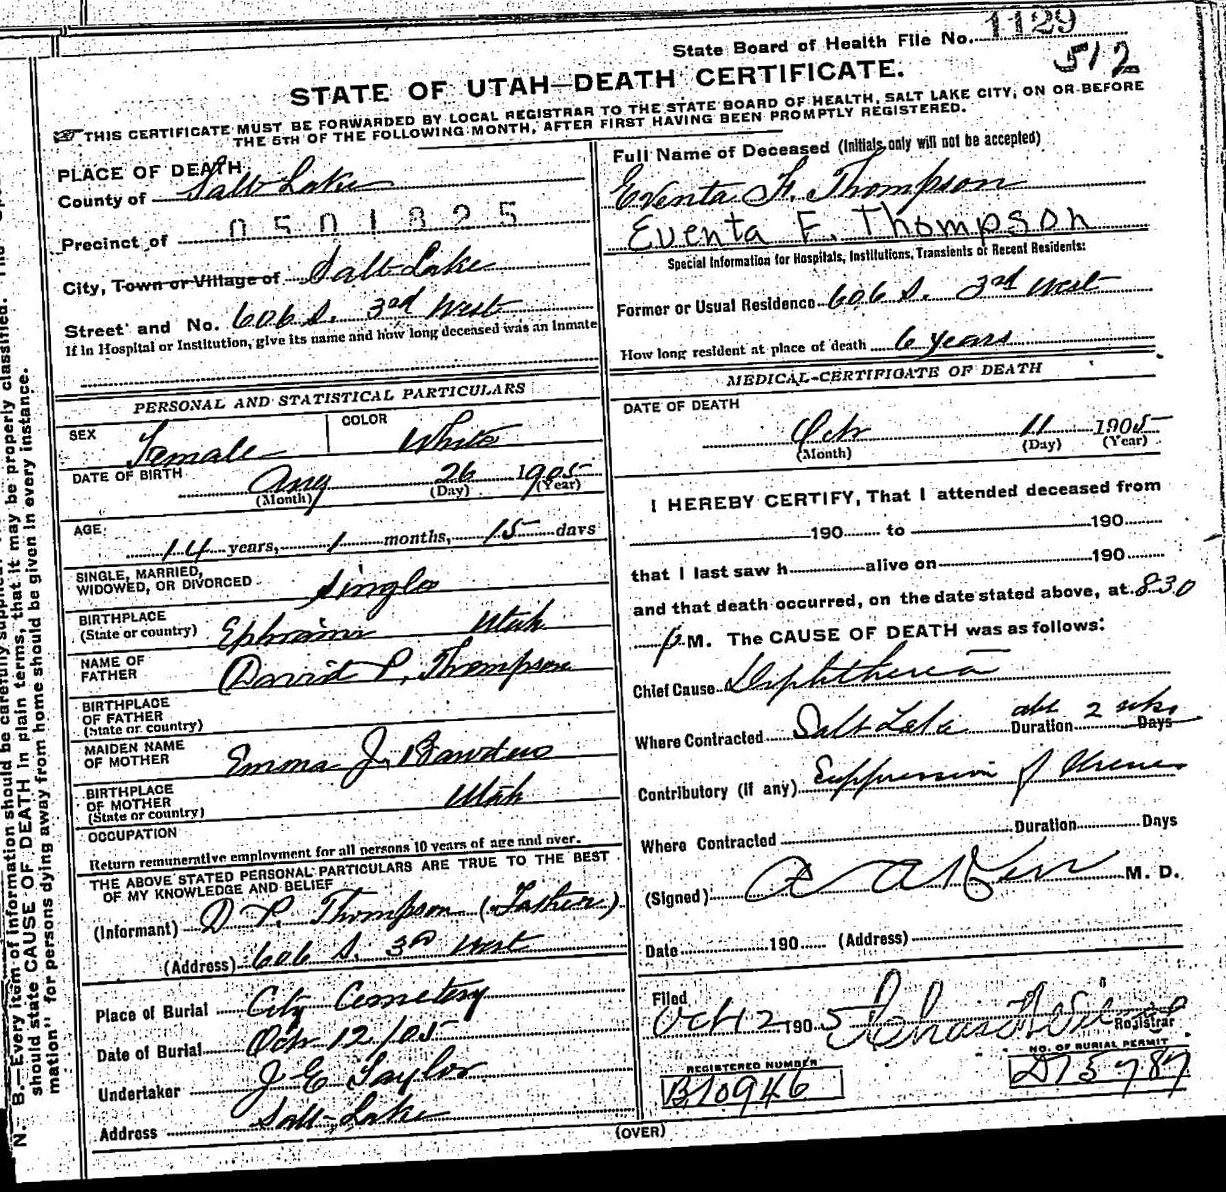 State Board of Health File No. 1129
512
STATE OF UTAH—DEATH CERTIFICATE.
THIS CERTIFICATE MUST BE FORWARDED BY LOCAL REGISTRAR TO THE STATE BOARD OF HEALTH, SALT LAKE CITY, ON OR BEFORE
THE 5TH OF THE FOLLOWING MONTH, AFTER FIRST HAVING BEEN PROMPTLY REGISTERED.
PLACE OF DEATH
County of Salt Lake
Precinct of 0501825
City, Town or Village of Salt Lake
Street and No. 606 S. 3rd West
If in Hospital or Institution, give its name and how long deceased was an Inmate
PERSONAL AND STATISTICAL PARTICULARS
SEX Female COLOR White
DATE OF BIRTH Aug 26 1905
(Month) (Day) (Year)
AGE 14 years, 1 months, 15 days
SINGLE, MARRIED,
WIDOWED, OR DIVORCED Single
BIRTHPLACE
(State or country) Ephraim Utah
NAME OF
FATHER David P. Thompson
BIRTHPLACE
OF FATHER
(State or country)
MAIDEN NAME
OF MOTHER Emma J.
BIRTHPLACE
OF MOTHER
(State or country) Utah
OCCUPATION
Return remunerative employment for all persons 10 years of age and over.
THE ABOVE STATED PERSONAL PARTICULARS ARE TRUE TO THE BEST
OF MY KNOWLEDGE AND BELIEF
(Informant) D. P. Thompson (Father)
(Address) 606 S. 3rd West
Place of Burial City Cemetery
Date of Burial Oct 12/05
Undertaker J E Taylor
Address Salt Lake
Full Name of Deceased (Initials only will not be accepted)
Eventa F. Thompson
Eventa F. Thompson
Special Information for Hospitals, Institutions, Transients or Recent Residents:
Former or Usual Residence 606 S. 3rd West
How long resident at place of death 6 years
MEDICAL CERTIFICATE OF DEATH
DATE OF DEATH
Oct 11 1905
(Month) (Day) (Year)
I HEREBY CERTIFY, That I attended deceased from
190 to 190
that I last saw h alive on 190
and that death occurred, on the date stated above, at 8-30
p M. The CAUSE OF DEATH was as follows:
Chief Cause Diphtheria
Where Contracted Salt Lake Duration abt 2 wks Days
Contributory (If any) Suppression of Urine
Where Contracted Duration Days
(Signed) M. D.
Date 190 (Address)
Filed
Oct 12 1905 Registrar
REGISTERED NUMBER
B10946
NO. OF BURIAL PERMIT
D15787
(OVER)
N. B.—Every item of information should be carefully supplied.
should state CAUSE OF DEATH in plain terms, that it may be properly classified. The
mation" for persons dying away from home should be given in every instance.